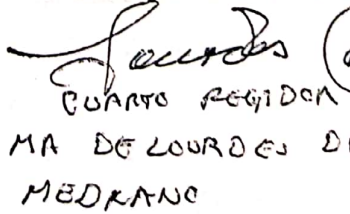 Lourdes
CUARTO REGIDOR
MA DE LOURDES D
MEDRANO